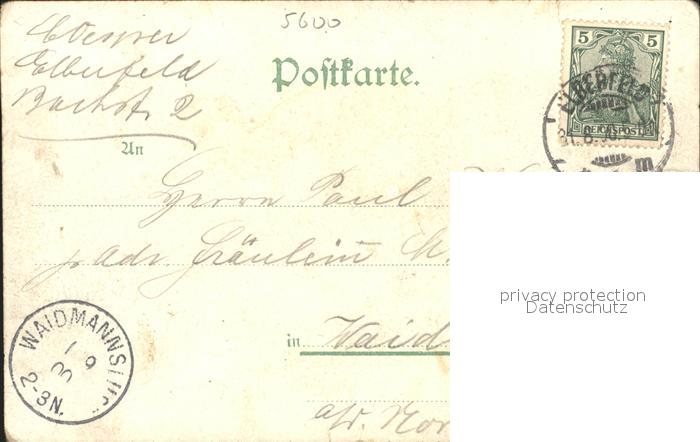 5600
Elberfeld
Bachstr. 2
Postkarte.
5 5
REICHSPOST
ELBERFELD
m
An
Herrn Paul
p. adr. Fräulein M.
in Waid
a/d. Nor
WAIDMANNSLUST
1 9
00
2-3N.
privacy protection
Datenschutz